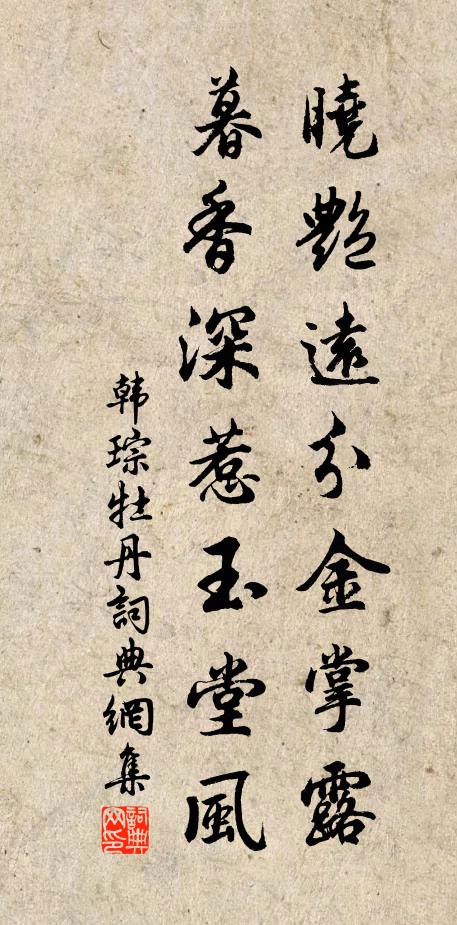 曉艷遠分金掌露
暮香深惹玉堂風
韩琮牡丹詞典網集
詞典网印